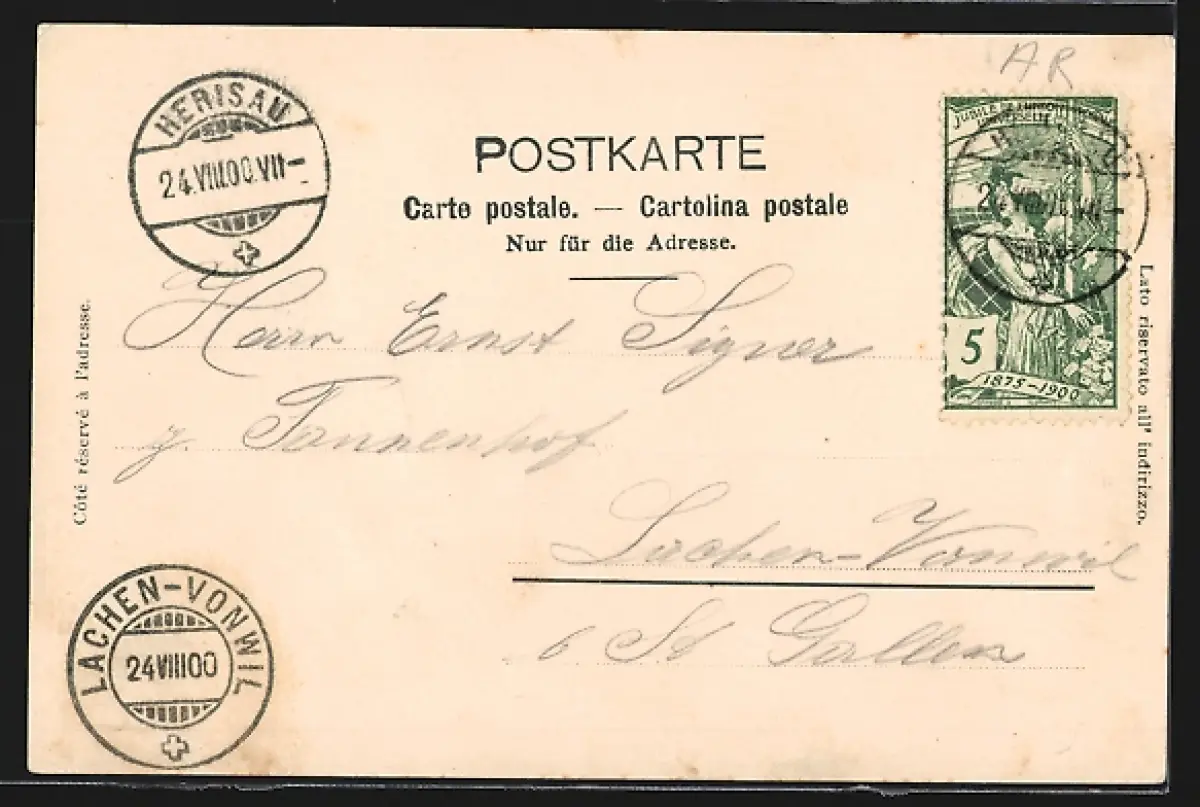 AR
HERISAU
24.VIII.00.VII-
POSTKARTE
Carte postale. — Cartolina postale
Nur für die Adresse.
JUBILÉ DE L'UNION POSTALE
UNIVERSELLE
5
1875-1900
Côté réservé à l'adresse.
Lato riservato all' indirizzo.
Herrn Ernst Signer
z. Tannenhof
Lachen-Vonwil
b St Gallen
LACHEN-VONWIL
24VIII00